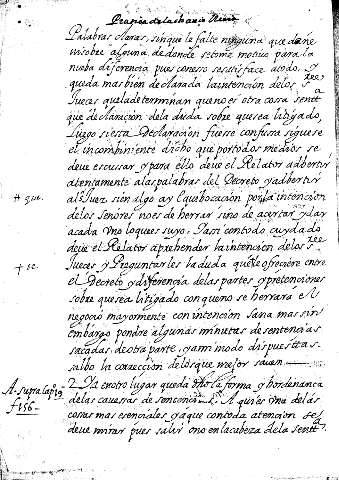 Palabras claras, sin que le falte ninguna que
ni sobre alguna de donde se tome motiuo para la
nueba diferencia pues con esso se satisface a todo. Y
queda mas bien declarada la intencion de los Sres
Jueces que la determinan que no es otra cosa sentª
que declaracion de la duda sobre que se a litigado,
luego si esta Declaracion fuesse confusa siguese
el incombiniente dicho que por todos medios se
deue escussar y para ello deue el Relator aduertir
atentamente a las palabras del Decreto y aduertir
# que. al Juez si en algo ay equibocacion por la intencion
de los Señores no es de herrar sino de acertar y dar
a cada vno lo que es suyo. Y assi con todo cuydado
deue el Relator aprehender la intencion de los Sres
+ se. Jueces y Preguntarles la duda que se ofreciere entre
el Decreto y diferencia de las partes y pretenciones
sobre que se a litigado con que no se herrara el
negocio mayormente con intencion sana mas sin
embargo pondre algunas minutas de sentencias
sacadas de otra parte, y a mi modo dispuestas
salbo la coreccion de los que mejor sauen
A. supra cap. 2. Ya en otro lugar queda dho la forma y hordenanza
f 156 de las cauessas de sentencias. Aqui es vna de las
cosas mas esenciales y a que con toda atencion se
deue mirar pues salir vno en la cabeza de la sentª